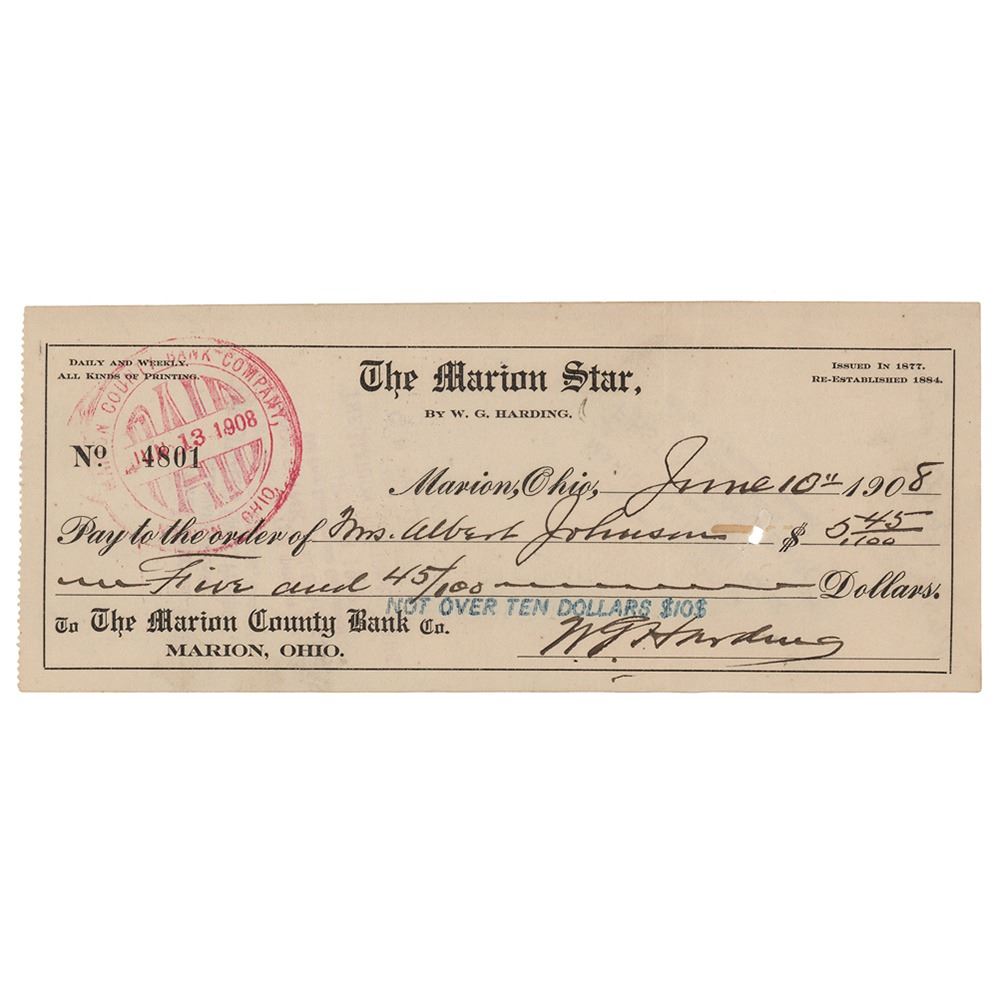 DAILY AND WEEKLY.
ALL KINDS OF PRINTING.
The Marion Star,
BY W. G. HARDING.
ISSUED IN 1877.
RE-ESTABLISHED 1884.
MARION COUNTY BANK COMPANY,
PAID
JUN 13 1908
PAID
MARION, OHIO.
No. 4801
Marion, Ohio, June 10" 1908
Pay to the order of Mrs. Albert Johnson $ 5 45/100
Five and 45/100 Dollars.
NOT OVER TEN DOLLARS $10$
To The Marion County Bank Co.
MARION, OHIO.
W. G. Harding